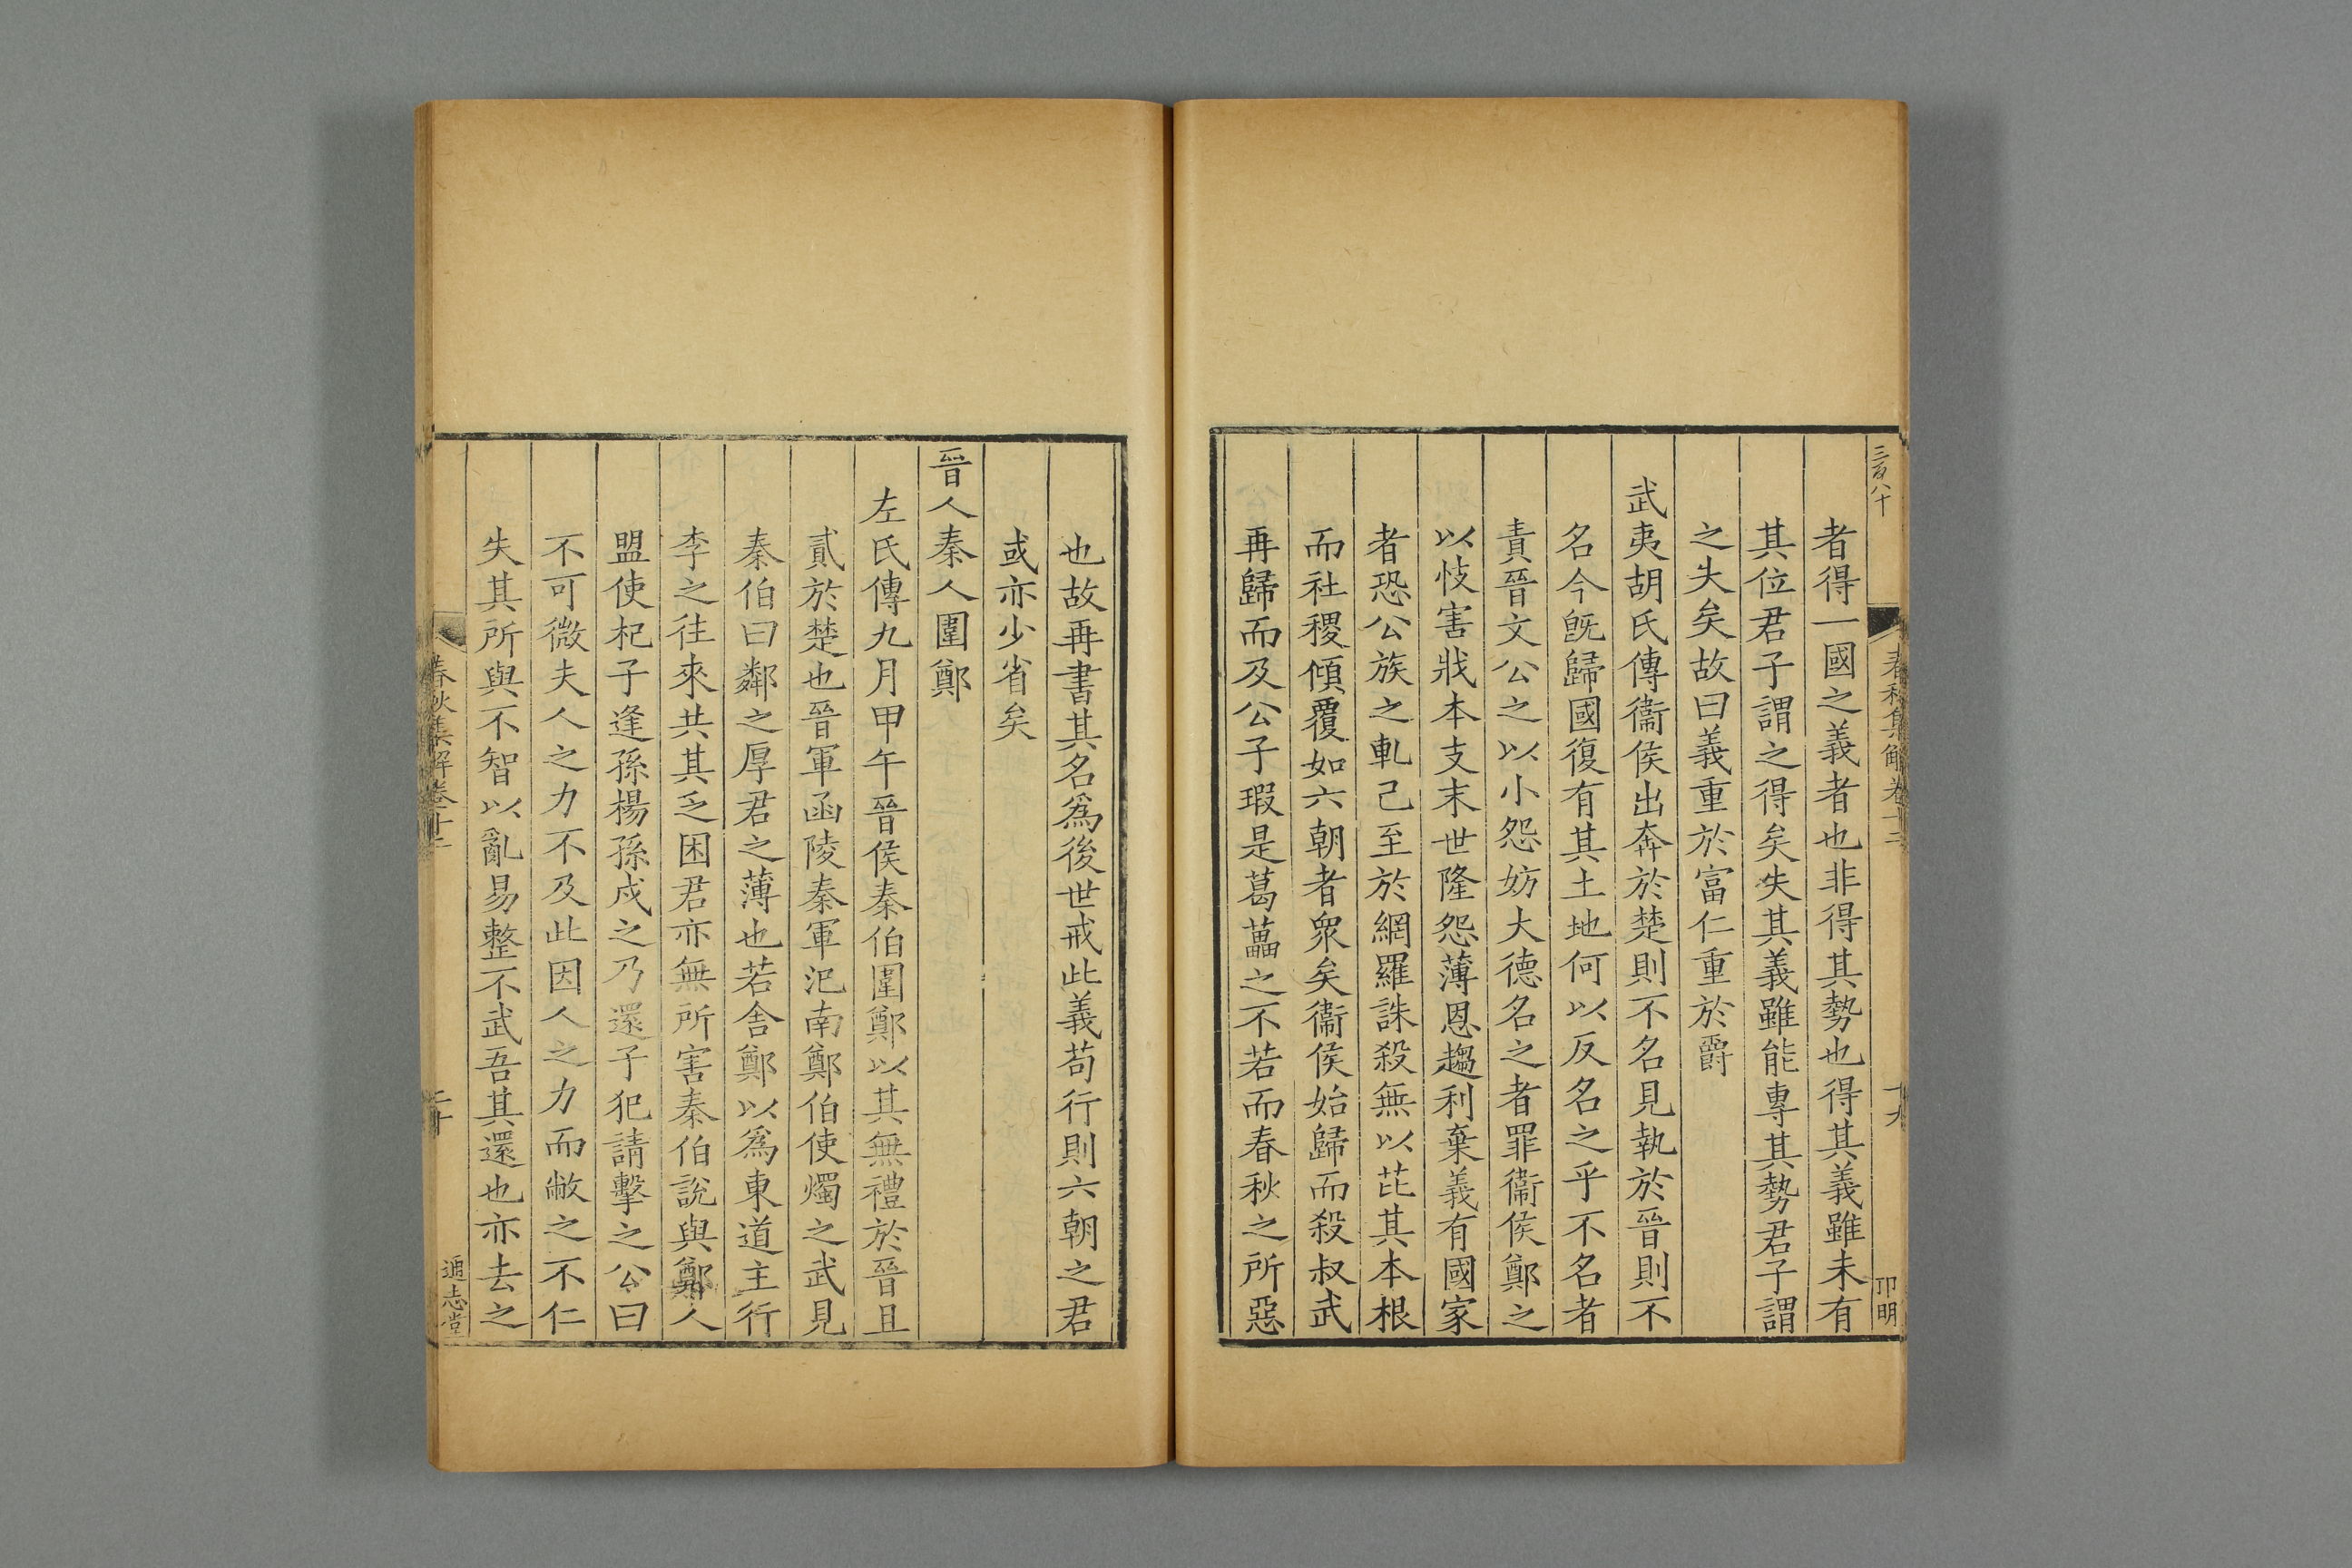 三百八十
春秋集解卷十二
十九
卭明
者得一國之義者也非得其勢也得其義雖未有
其位君子謂之得矣失其義雖能專其勢君子謂
之失矣故曰義重於富仁重於爵
武夷胡氏傳衞侯出奔於楚則不名見執於晉則不
名今旣歸國復有其土地何以反名之乎不名者
責晉文公之以小怨妨大德名之者罪衞侯鄭之
以忮害戕本支末世隆怨薄恩趨利棄義有國家
者恐公族之軋己至於網羅誅殺無以芘其本根
而社稷傾覆如六朝者衆矣衞侯始歸而殺叔武
再歸而及公子瑕是葛藟之不若而春秋之所惡
也故再書其名爲後世戒此義苟行則六朝之君
或亦少省矣
晉人秦人圍鄭
左氏傳九月甲午晉侯秦伯圍鄭以其無禮於晉且
貳於楚也晉軍函陵秦軍汜南鄭伯使燭之武見
秦伯曰鄰之厚君之薄也若舍鄭以爲東道主行
李之往來共其乏困君亦無所害秦伯說與鄭人
盟使杞子逢孫楊孫戍之乃還子犯請擊之公曰
不可微夫人之力不及此因人之力而敝之不仁
失其所與不智以亂易整不武吾其還也亦去之
春秋集解卷十二
二十
通志堂